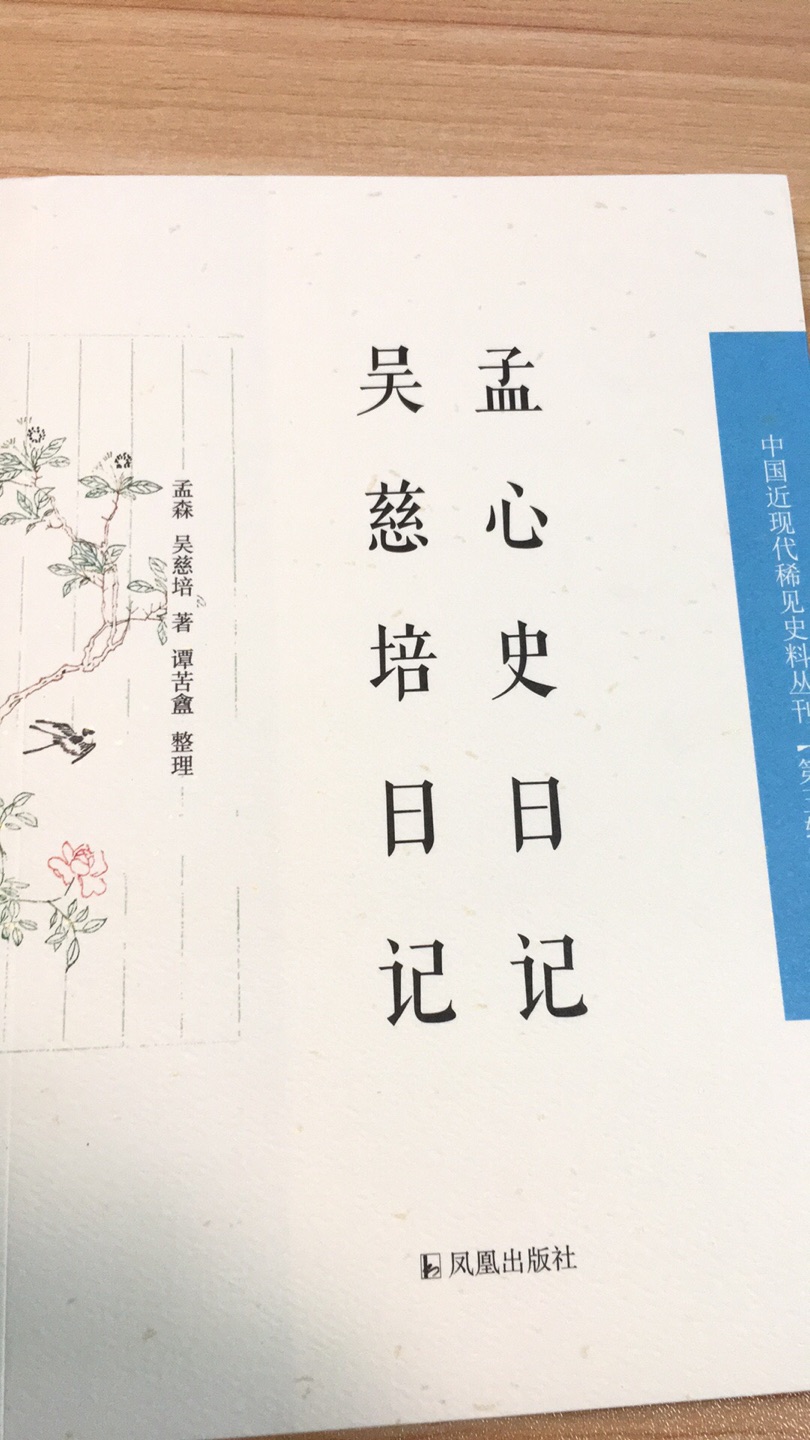 中国近现代稀见史料丛刊
孟心史日记
吴慈培日记
孟森 吴慈培 著 谭苦盦 整理
凤凰出版社